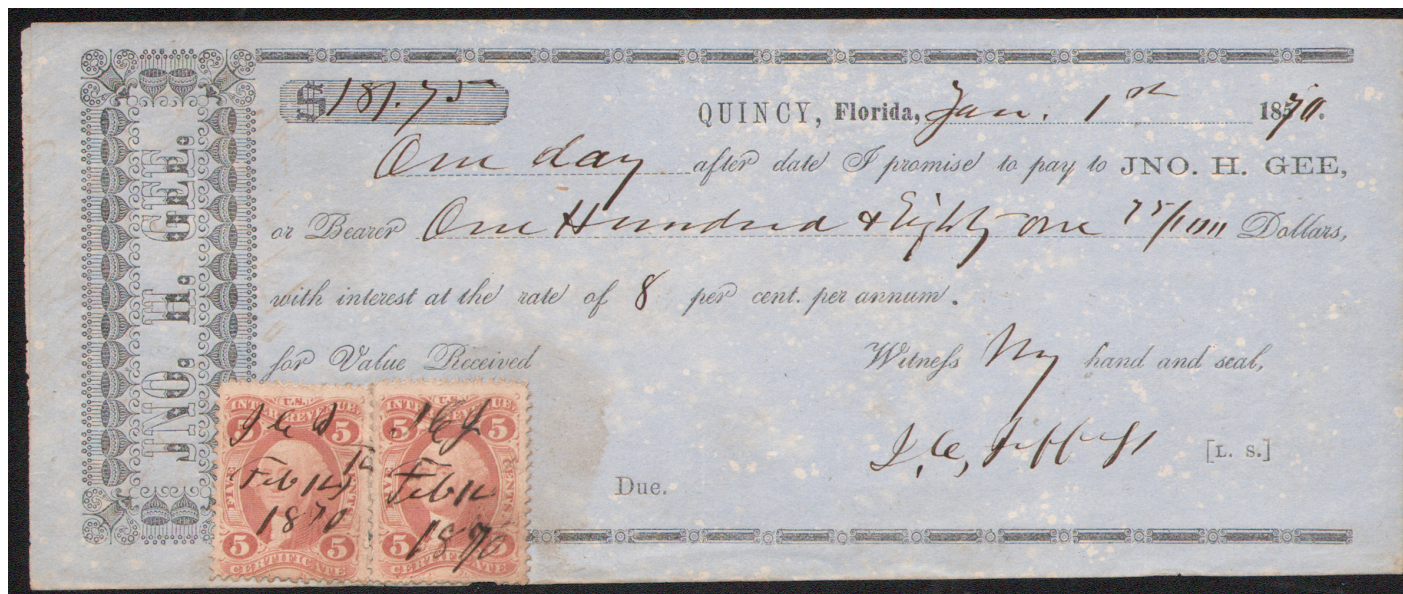 JNO. H. GEE.
$ 181.75
QUINCY, Florida, Jan. 1st 1870.
One day after date I promise to pay to JNO. H. GEE,
or Bearer One Hundred & Eighty one 75/100 Dollars,
with interest at the rate of 8 per cent. per annum.
for Value Received Witness My hand and seal,
[L. S.]
Due.
U.S.
INTER. REVENUE
5 5
FIVE CENTS
Feb 14
1870
5 5
CERTIFICATE
U.S.
INTER. REVENUE
5 5
FIVE CENTS
Feb 14
1870
5 5
CERTIFICATE